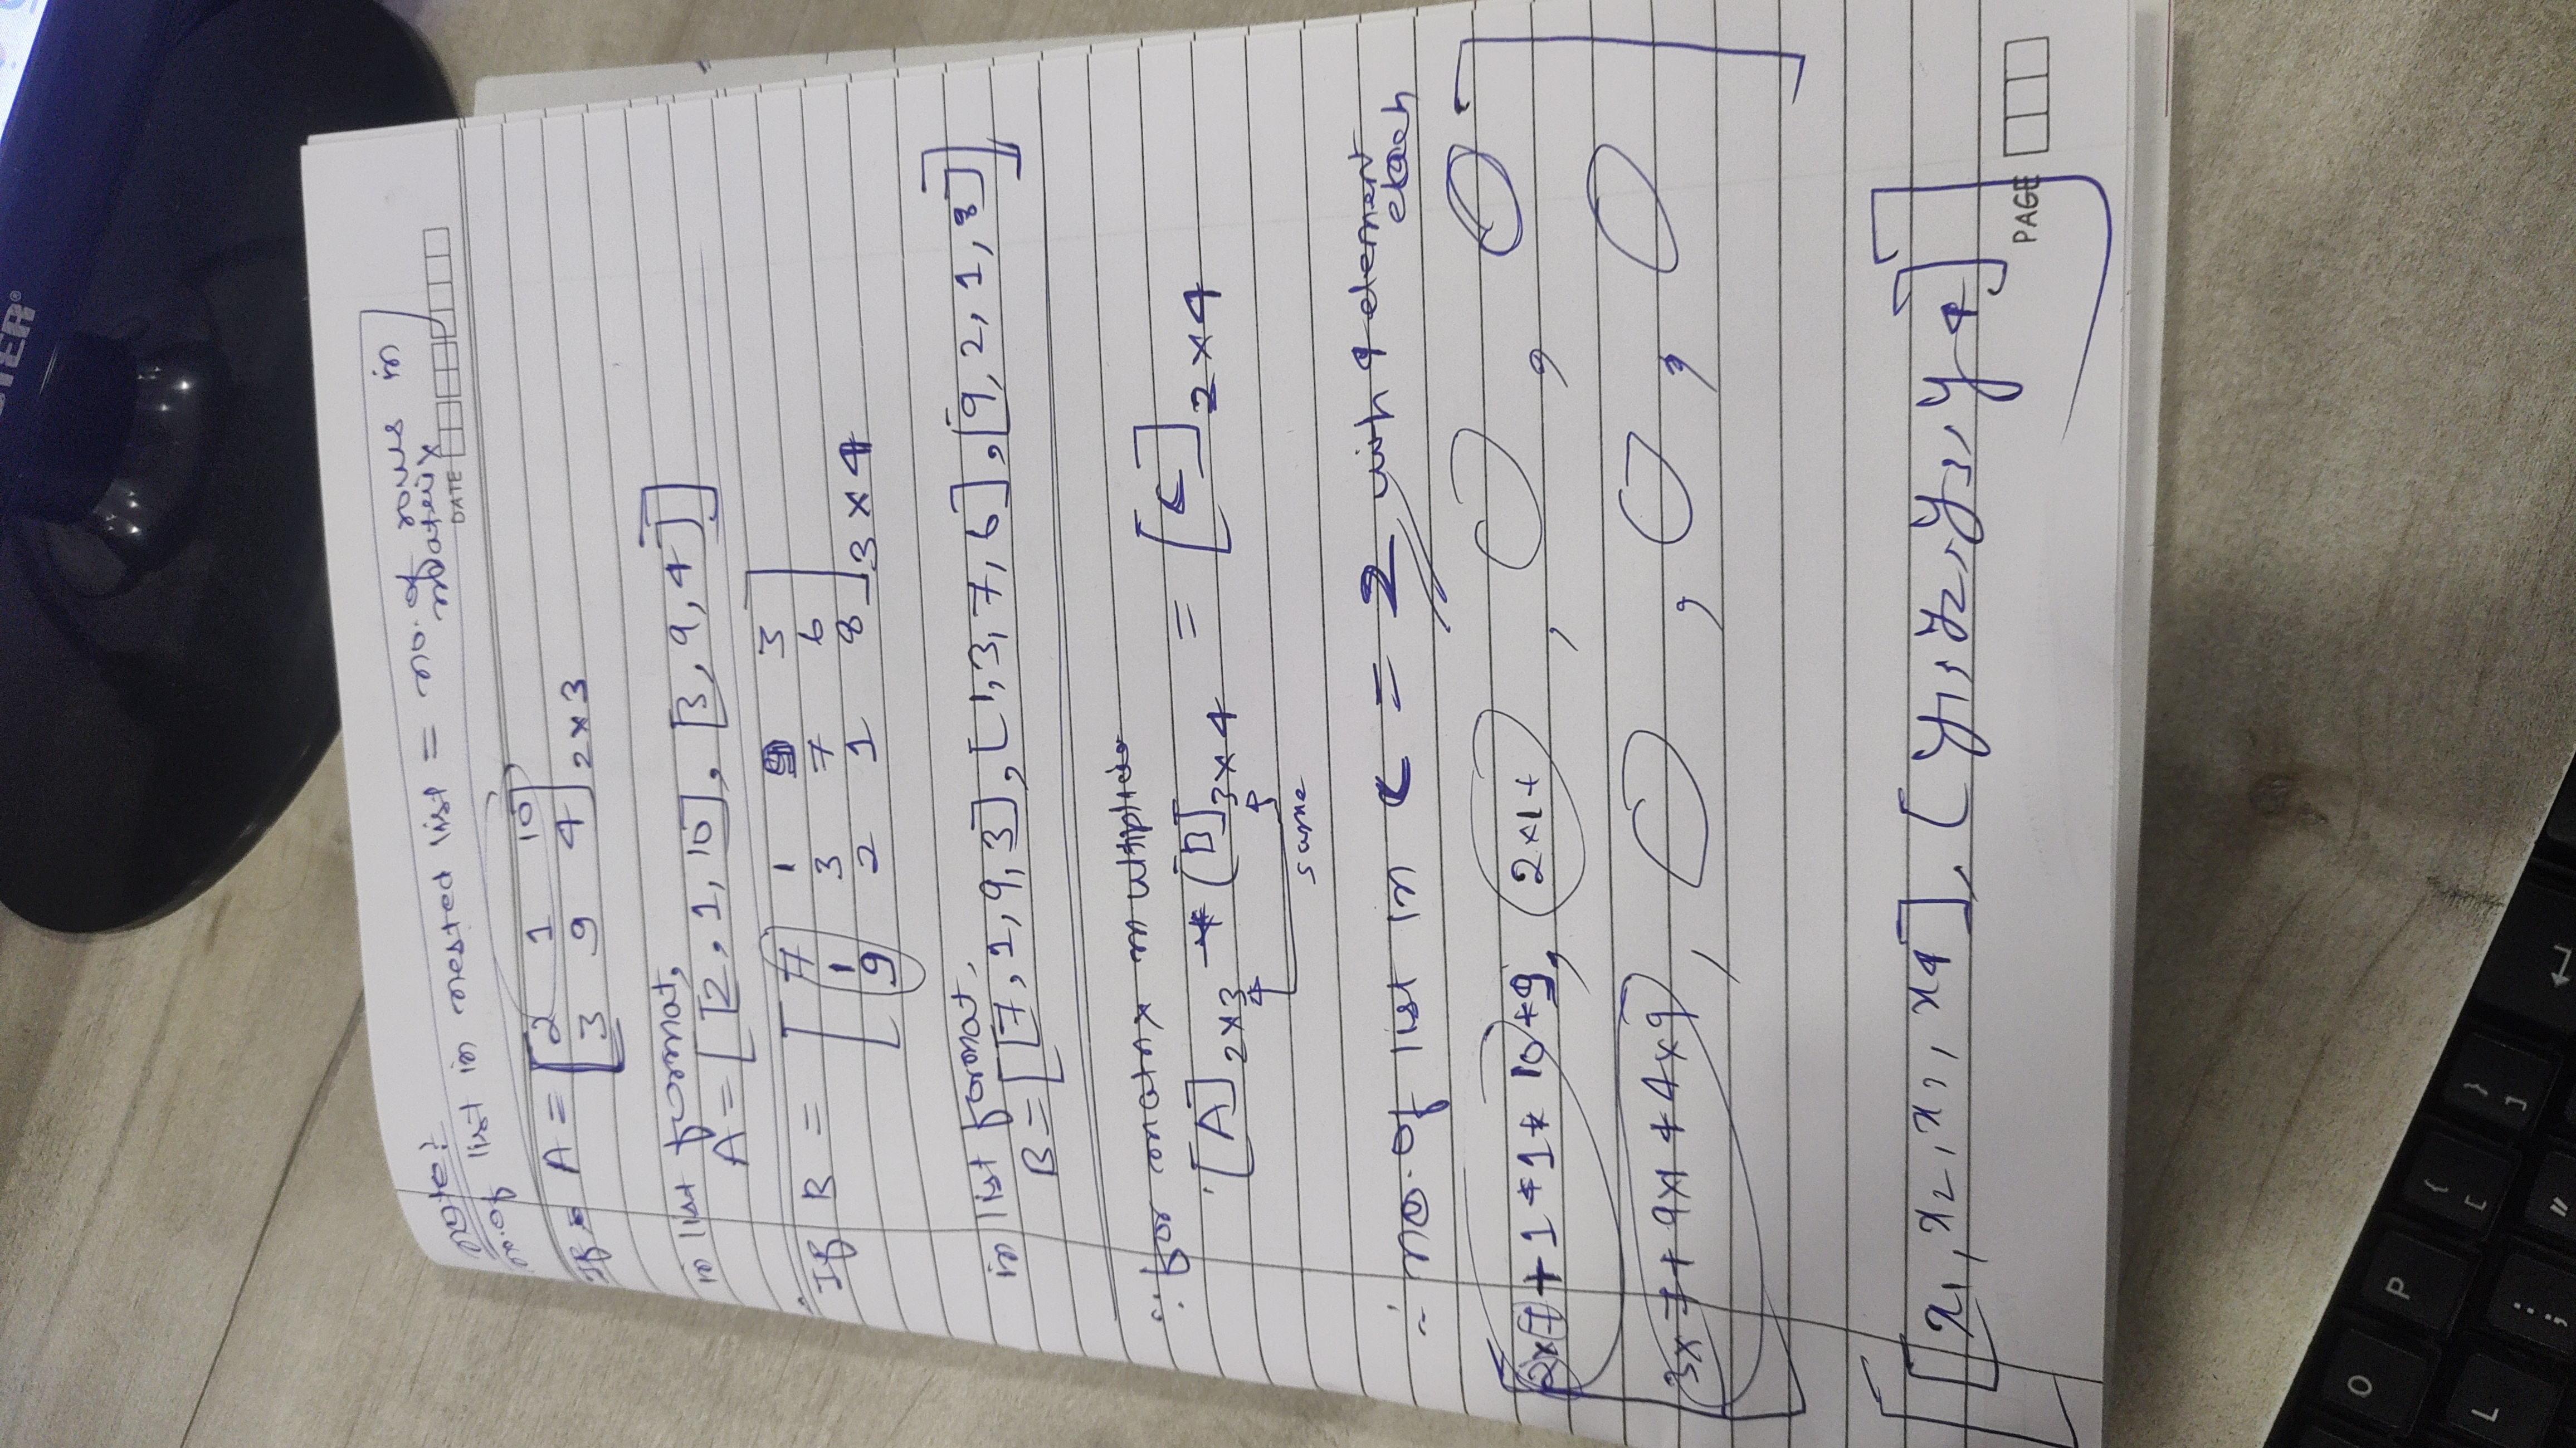 STER®
Note:
no. of list in nested list = no. of rows in
matrix
DATE
If A = [2 1 10
3 9 4] 2×3
in list format,
A = [[2, 1, 10], [3, 9, 4]]
If B = [7 1 9 3
1 3 7 6
9 2 1 8] 3×4
in list format,
B = [[7, 1, 9, 3], [1, 3, 7, 6], [9, 2, 1, 8]]
∴ for matrix multiplica
[A] 2×3 * [B] 3×4 = [C] 2×4
same
∴ no. of list in C = 2 with 4 element
each
[2×7 + 1*1* 10*9, 2×1+ , ,
3×7+9×1+4×9, , , ]
[[x1, x2, x3, x4], [y1, y2, y3, y4]]
PAGE
O
P
{
[
}
]
L
:
;
"